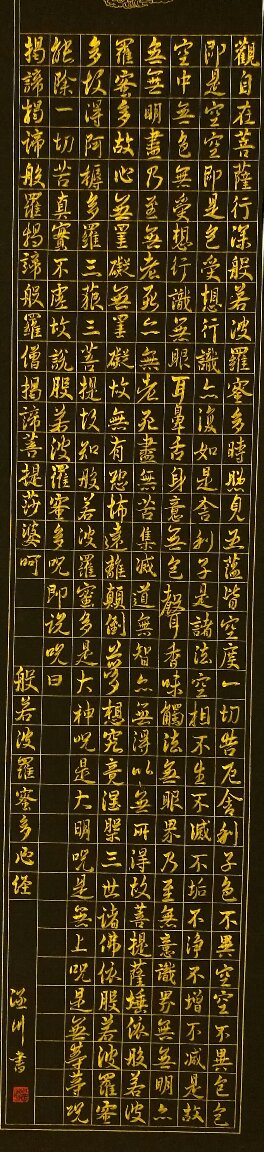 觀自在菩薩行深般若波羅蜜多時照見五蘊皆空度一切苦厄舍利子色不異空空不異色色
即是空空即是色受想行識亦復如是舍利子是諸法空相不生不滅不垢不淨不增不減是故
空中無色無受想行識無眼耳鼻舌身意無色聲香味觸法無眼界乃至無意識界無無明亦
無無明盡乃至無老死亦無老死盡無苦集滅道無智亦無得以無所得故菩提薩埵依般若波
羅蜜多故心無罣礙無罣礙故無有恐怖遠離顛倒夢想究竟涅槃三世諸佛依般若波羅蜜
多故得阿耨多羅三藐三菩提故知般若波羅蜜多是大神呪是大明呪是無上呪是無等等呪
能除一切苦真實不虛故說般若波羅蜜多呪即說呪曰
揭諦揭諦般羅揭諦般羅僧揭諦菩提莎婆呵
般若波羅蜜多心經
川書